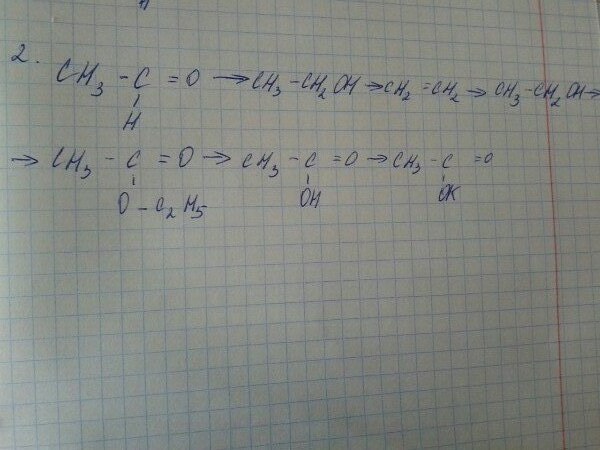 2.
CH₃ - C = O → CH₃ - CH₂ OH → CH₂ = CH₂ → CH₃ - CH₂ OH →
H
→ CH₃ - C = O → CH₃ - C = O → CH₃ - C = O
O - C₂ H₅ OH OK